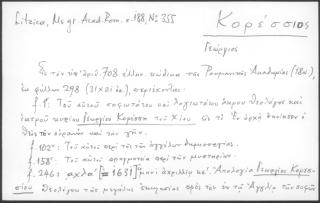 Litzica, Ms gr. Acad. Rom. σ. 188, № 355
Κορέσσιος
Γεώργιος
Ἐν τῷ ὑπ' ἀριθ. 708 ἑλλην. κώδικι τῆς Ρουμανικῆς Ἀκαδημίας (18αι),
ἐκ φύλλων 298 (31×21 ἑκ.), περιέχονται:
f. 1. Τοῦ αὐτοῦ σοφωτάτου καὶ λογιωτάτου ἄκρου θεολόγου καὶ
ἰατροῦ κυρίου Γεωργίου Κορέσση τοῦ Χίου εἰς τὸ Ἐν ἀρχῇ ἐποίησεν ὁ
Θεὸς τὸν οὐρανὸν καὶ τὴν γῆν.
f. 102: Τοῦ αὐτοῦ περὶ τῆς τῶν ἀγγέλων δημιουργίας.
f. 158: Τοῦ αὐτοῦ πραγματεία περὶ τῶν μυστηρίων.
f. 246: αχλα' [= 1631] μηνὶ ἀπριλλίῳ κ'. Ἀπολογία Γεωργίου Κορεσ-
σίου θεολόγου τῆς μεγάλης ἐκκλησίας πρὸς τὸν ἐν τῇ Ἀγγλίᾳ τῶν σοφῶν